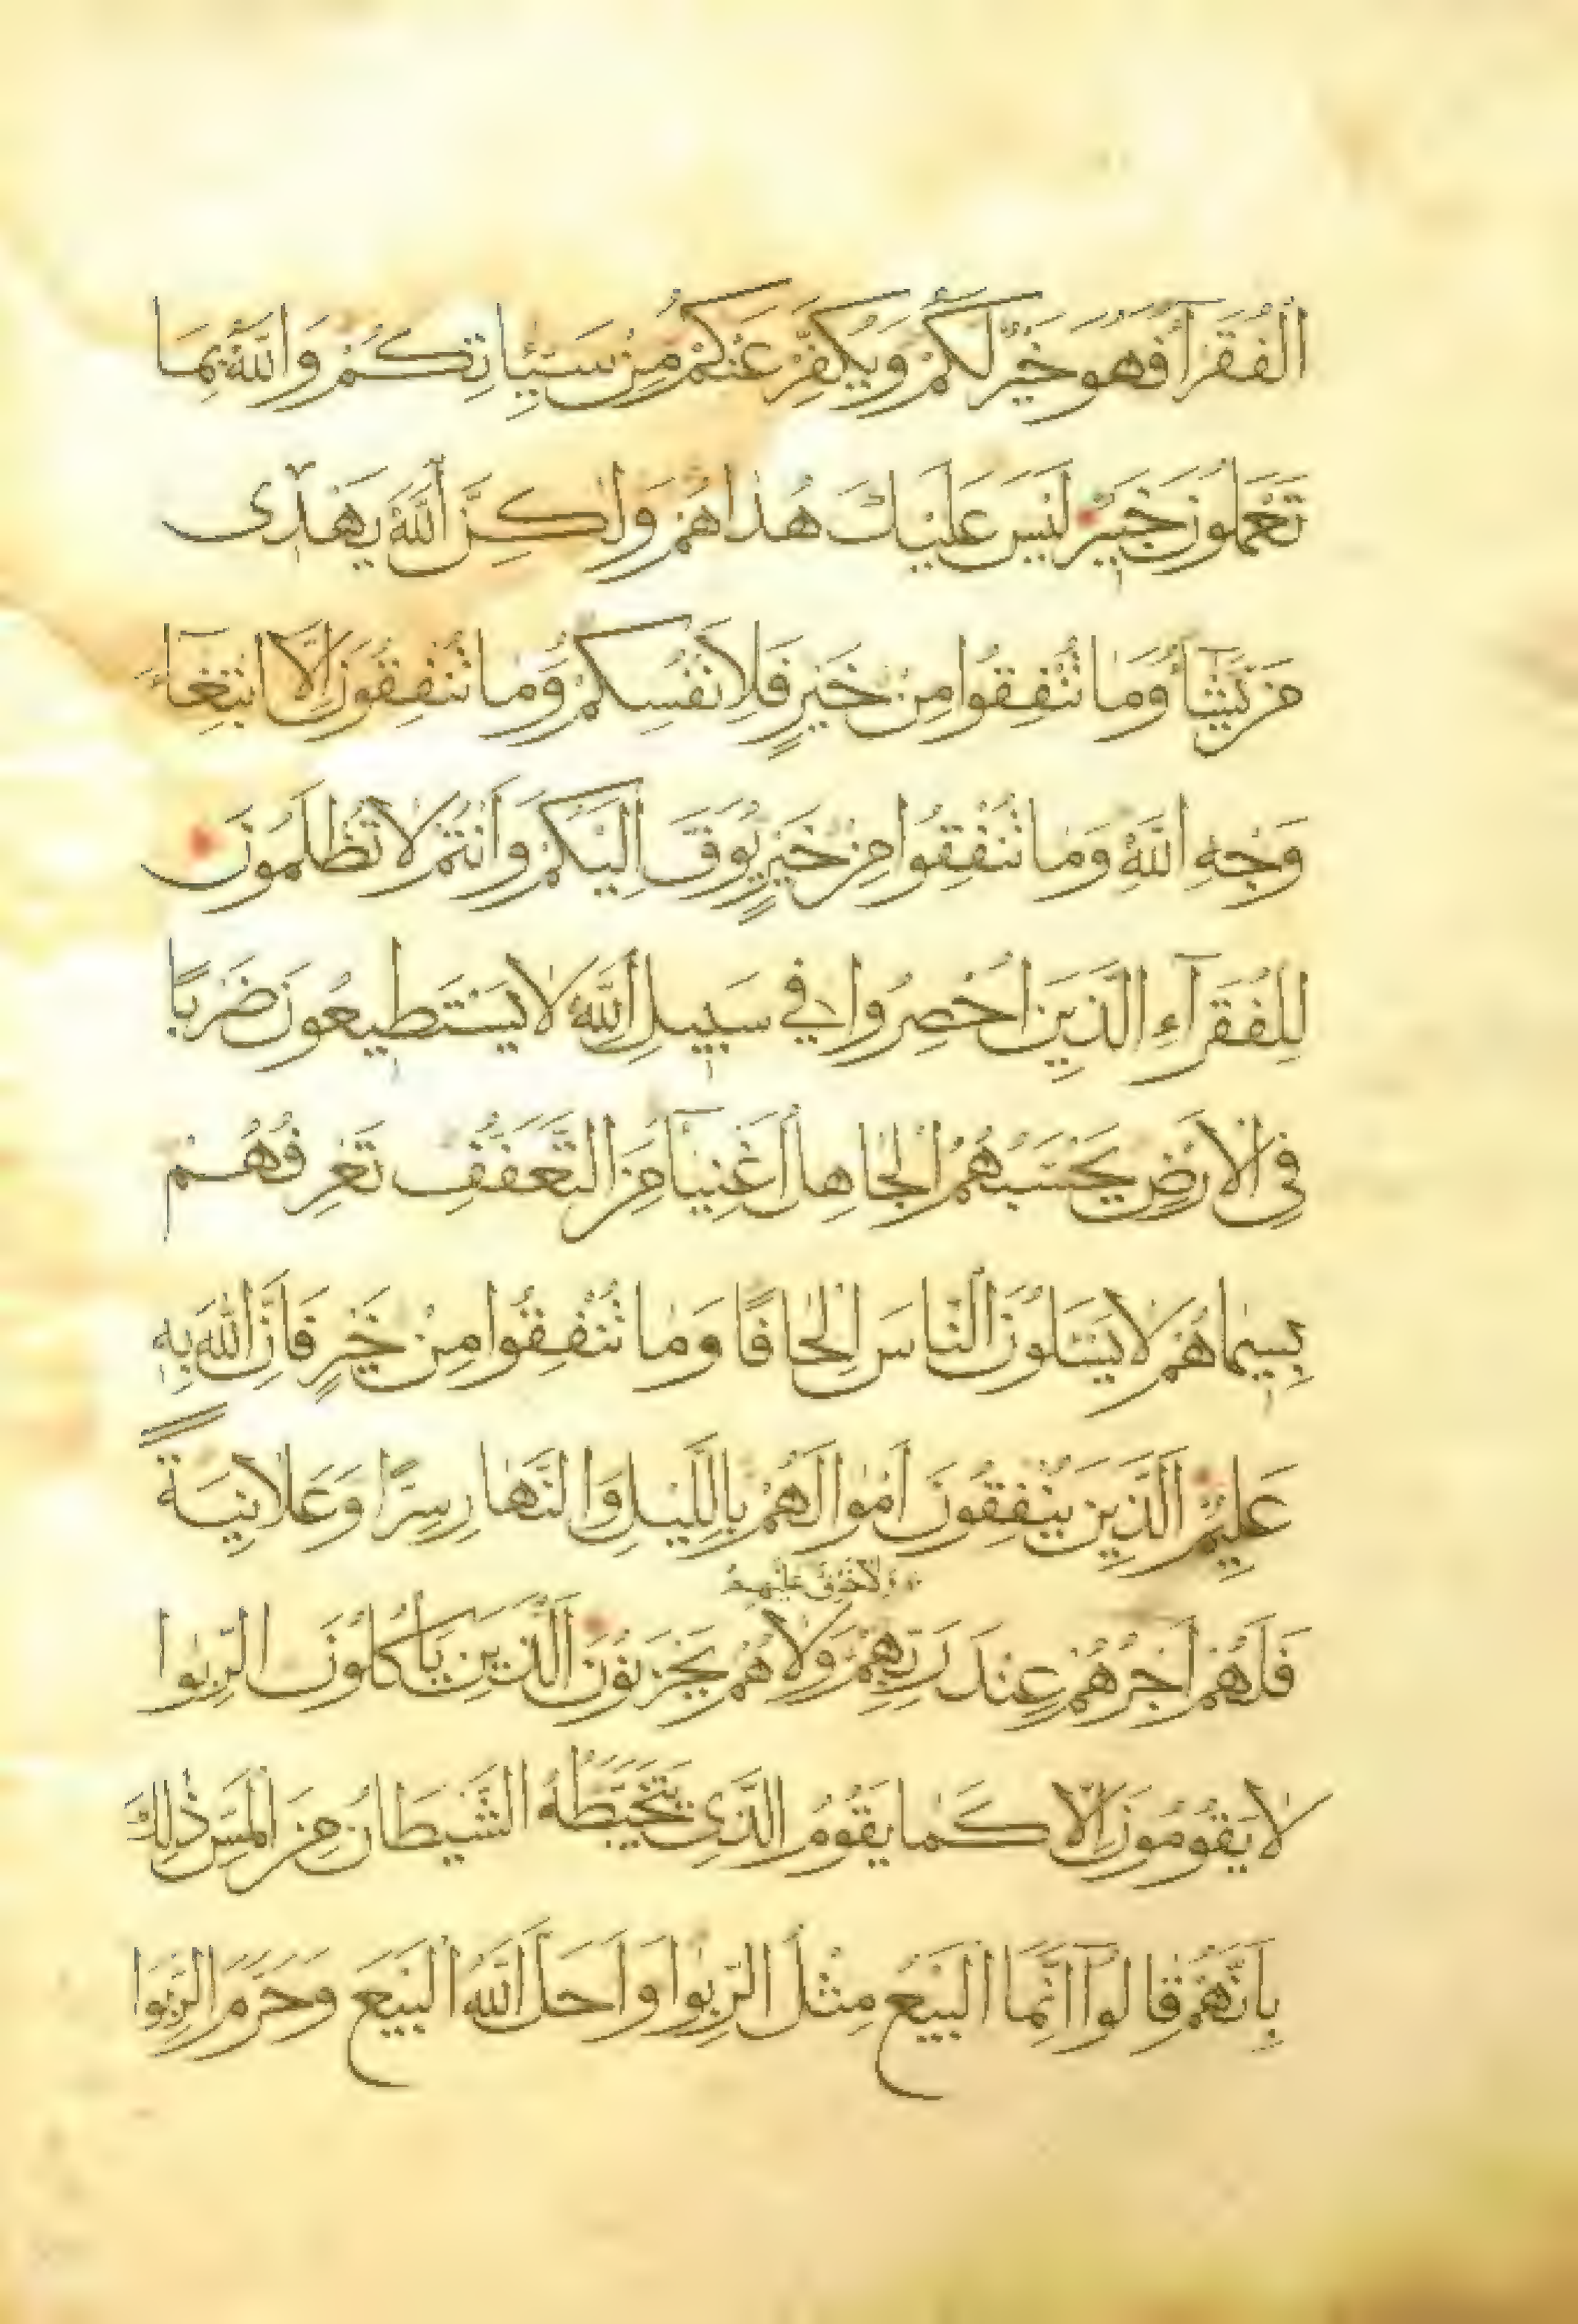 الْفُقَرَآءَ فَهُوَ خَيْرٌ لَكُمْ وَيُكَفِّرُ عَنْكُمْ مِنْ سَيِّئَاتِكُمْ وَاللّٰهُ بِمَا
تَعْمَلُونَ خَبِيرٌ لَيْسَ عَلَيْكَ هُدَاهُمْ وَلٰكِنَّ اللّٰهَ يَهْدِى
مَنْ يَشَآءُ وَمَا تُنْفِقُوا مِنْ خَيْرٍ فَلِاَنْفُسِكُمْ وَمَا تُنْفِقُونَ اِلَّا ابْتِغَآءَ
وَجْهِ اللّٰهِ وَمَا تُنْفِقُوا مِنْ خَيْرٍ يُوَفَّ اِلَيْكُمْ وَاَنْتُمْ لَا تُظْلَمُونَ
لِلْفُقَرَآءِ الَّذِينَ اُحْصِرُوا فِي سَبِيلِ اللّٰهِ لَا يَسْتَطِيعُونَ ضَرْبًا
فِي الْاَرْضِ يَحْسَبُهُمُ الْجَاهِلُ اَغْنِيَآءَ مِنَ التَّعَفُّفِ تَعْرِفُهُمْ
بِسِيمَاهُمْ لَا يَسْـَٔلُونَ النَّاسَ اِلْحَافًا وَمَا تُنْفِقُوا مِنْ خَيْرٍ فَاِنَّ اللّٰهَ بِهِ
عَلِيمٌ الَّذِينَ يُنْفِقُونَ اَمْوَالَهُمْ بِاللَّيْلِ وَالنَّهَارِ سِرًّا وَعَلَانِيَةً
فَلَهُمْ اَجْرُهُمْ عِنْدَ رَبِّهِمْ وَلَا هُمْ يَحْزَنُونَ الَّذِينَ يَاْكُلُونَ الرِّبٰوا
وَلَا خَوْفٌ عَلَيْهِمْ
لَا يَقُومُونَ اِلَّا كَمَا يَقُومُ الَّذِى يَتَخَبَّطُهُ الشَّيْطَانُ مِنَ الْمَسِّ ذٰلِكَ
بِاَنَّهُمْ قَالُوٓا اِنَّمَا الْبَيْعُ مِثْلُ الرِّبٰوا وَاَحَلَّ اللّٰهُ الْبَيْعَ وَحَرَّمَ الرِّبٰوا